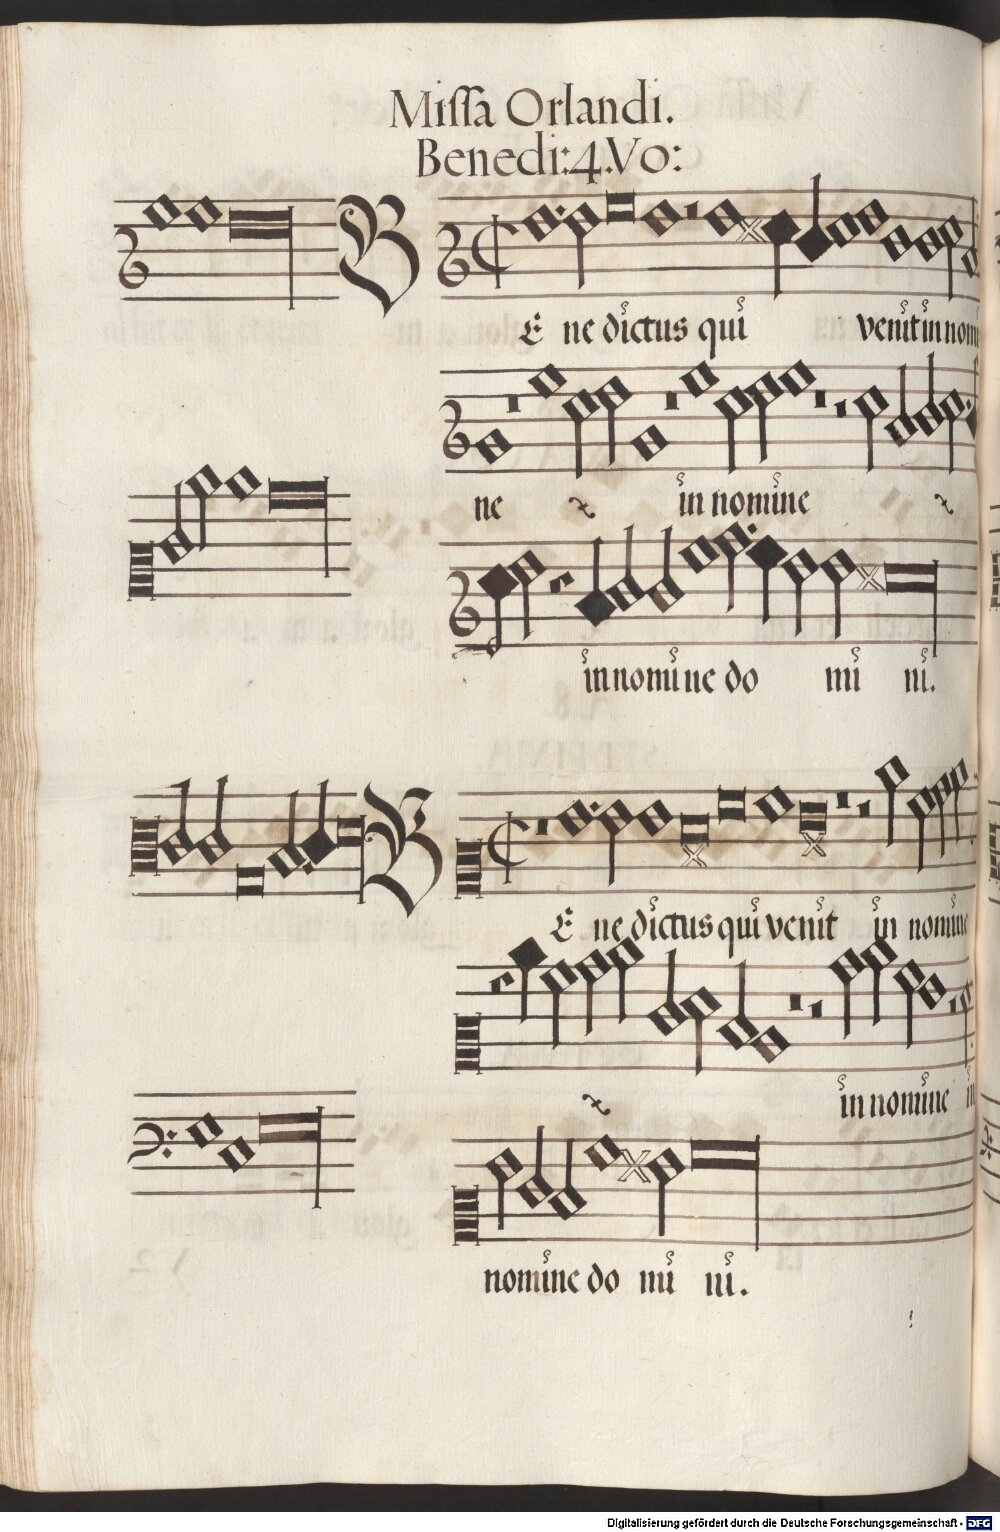 Missa Orlandi.
Benedi:4.Vo:
B
E ne dictus qui venit in nomi
ne in nomine
in nomine do mi ni.
B
E ne dictus qui venit in nomine
in nomine in
nomine do mi ni.
Digitalisierung gefördert durch die Deutsche Forschungsgemeinschaft - DFG